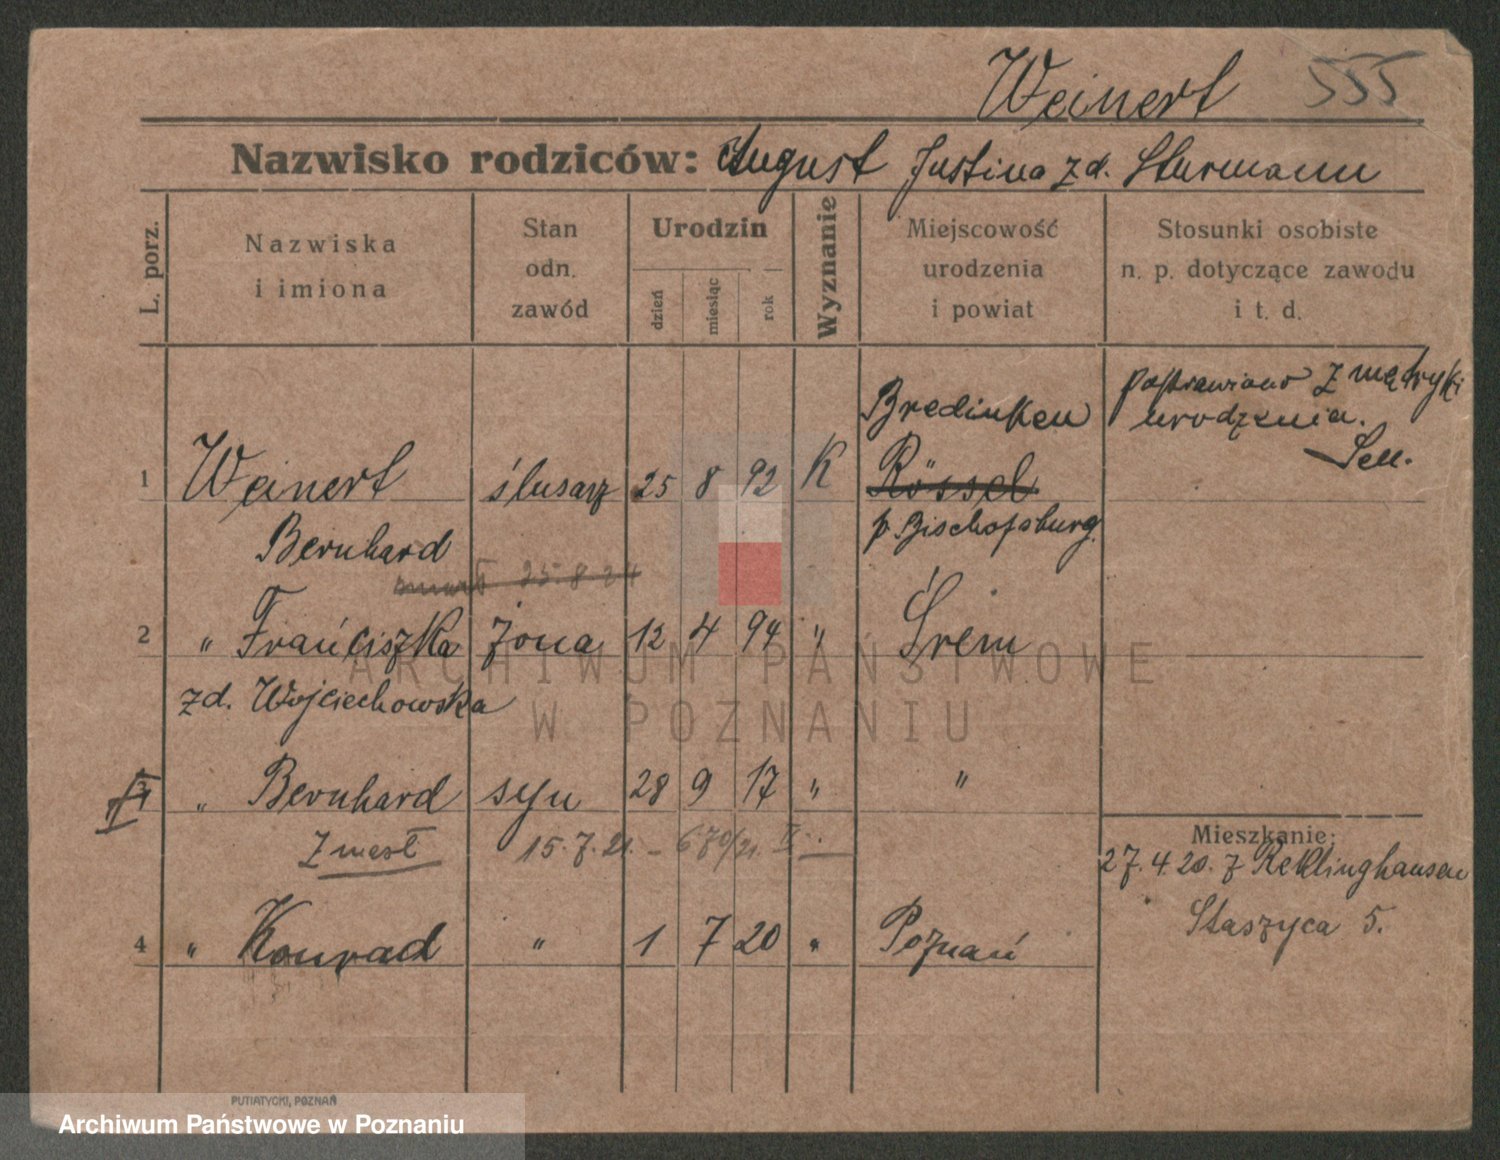 Weinert 555
Nazwisko rodziców: August Justina zd. Sturmann
L. porz.
Nazwiska
i imiona
Stan
odn.
zawód
Urodzin
dzień
miesiąc
rok
Wyznanie
Miejscowość
urodzenia
i powiat
Stosunki osobiste
n. p. dotyczące zawodu
i t. d.
Bredinken
poprawiono z metryki
urodzenia.
1 Weinert ślusarz 25 8 92 K Rössel
Bernhard
p. Bischofsburg.
25.8.24
2 " Frańciszka żona 12 4 94 " Śrem
zd. Wojciechowska
3 " Bernhard syn 28 9 17 " "
Zmarł 15.7.21. - 670/21. II..
Mieszkanie:
27.4.20. z Reklinghausen
Staszyca 5.
4 " Konrad " 1 7 20 " Poznań
PUTIATYCKI, POZNAŃ
ARCHIWUM PAŃSTWOWE
W POZNANIU
Archiwum Państwowe w Poznaniu